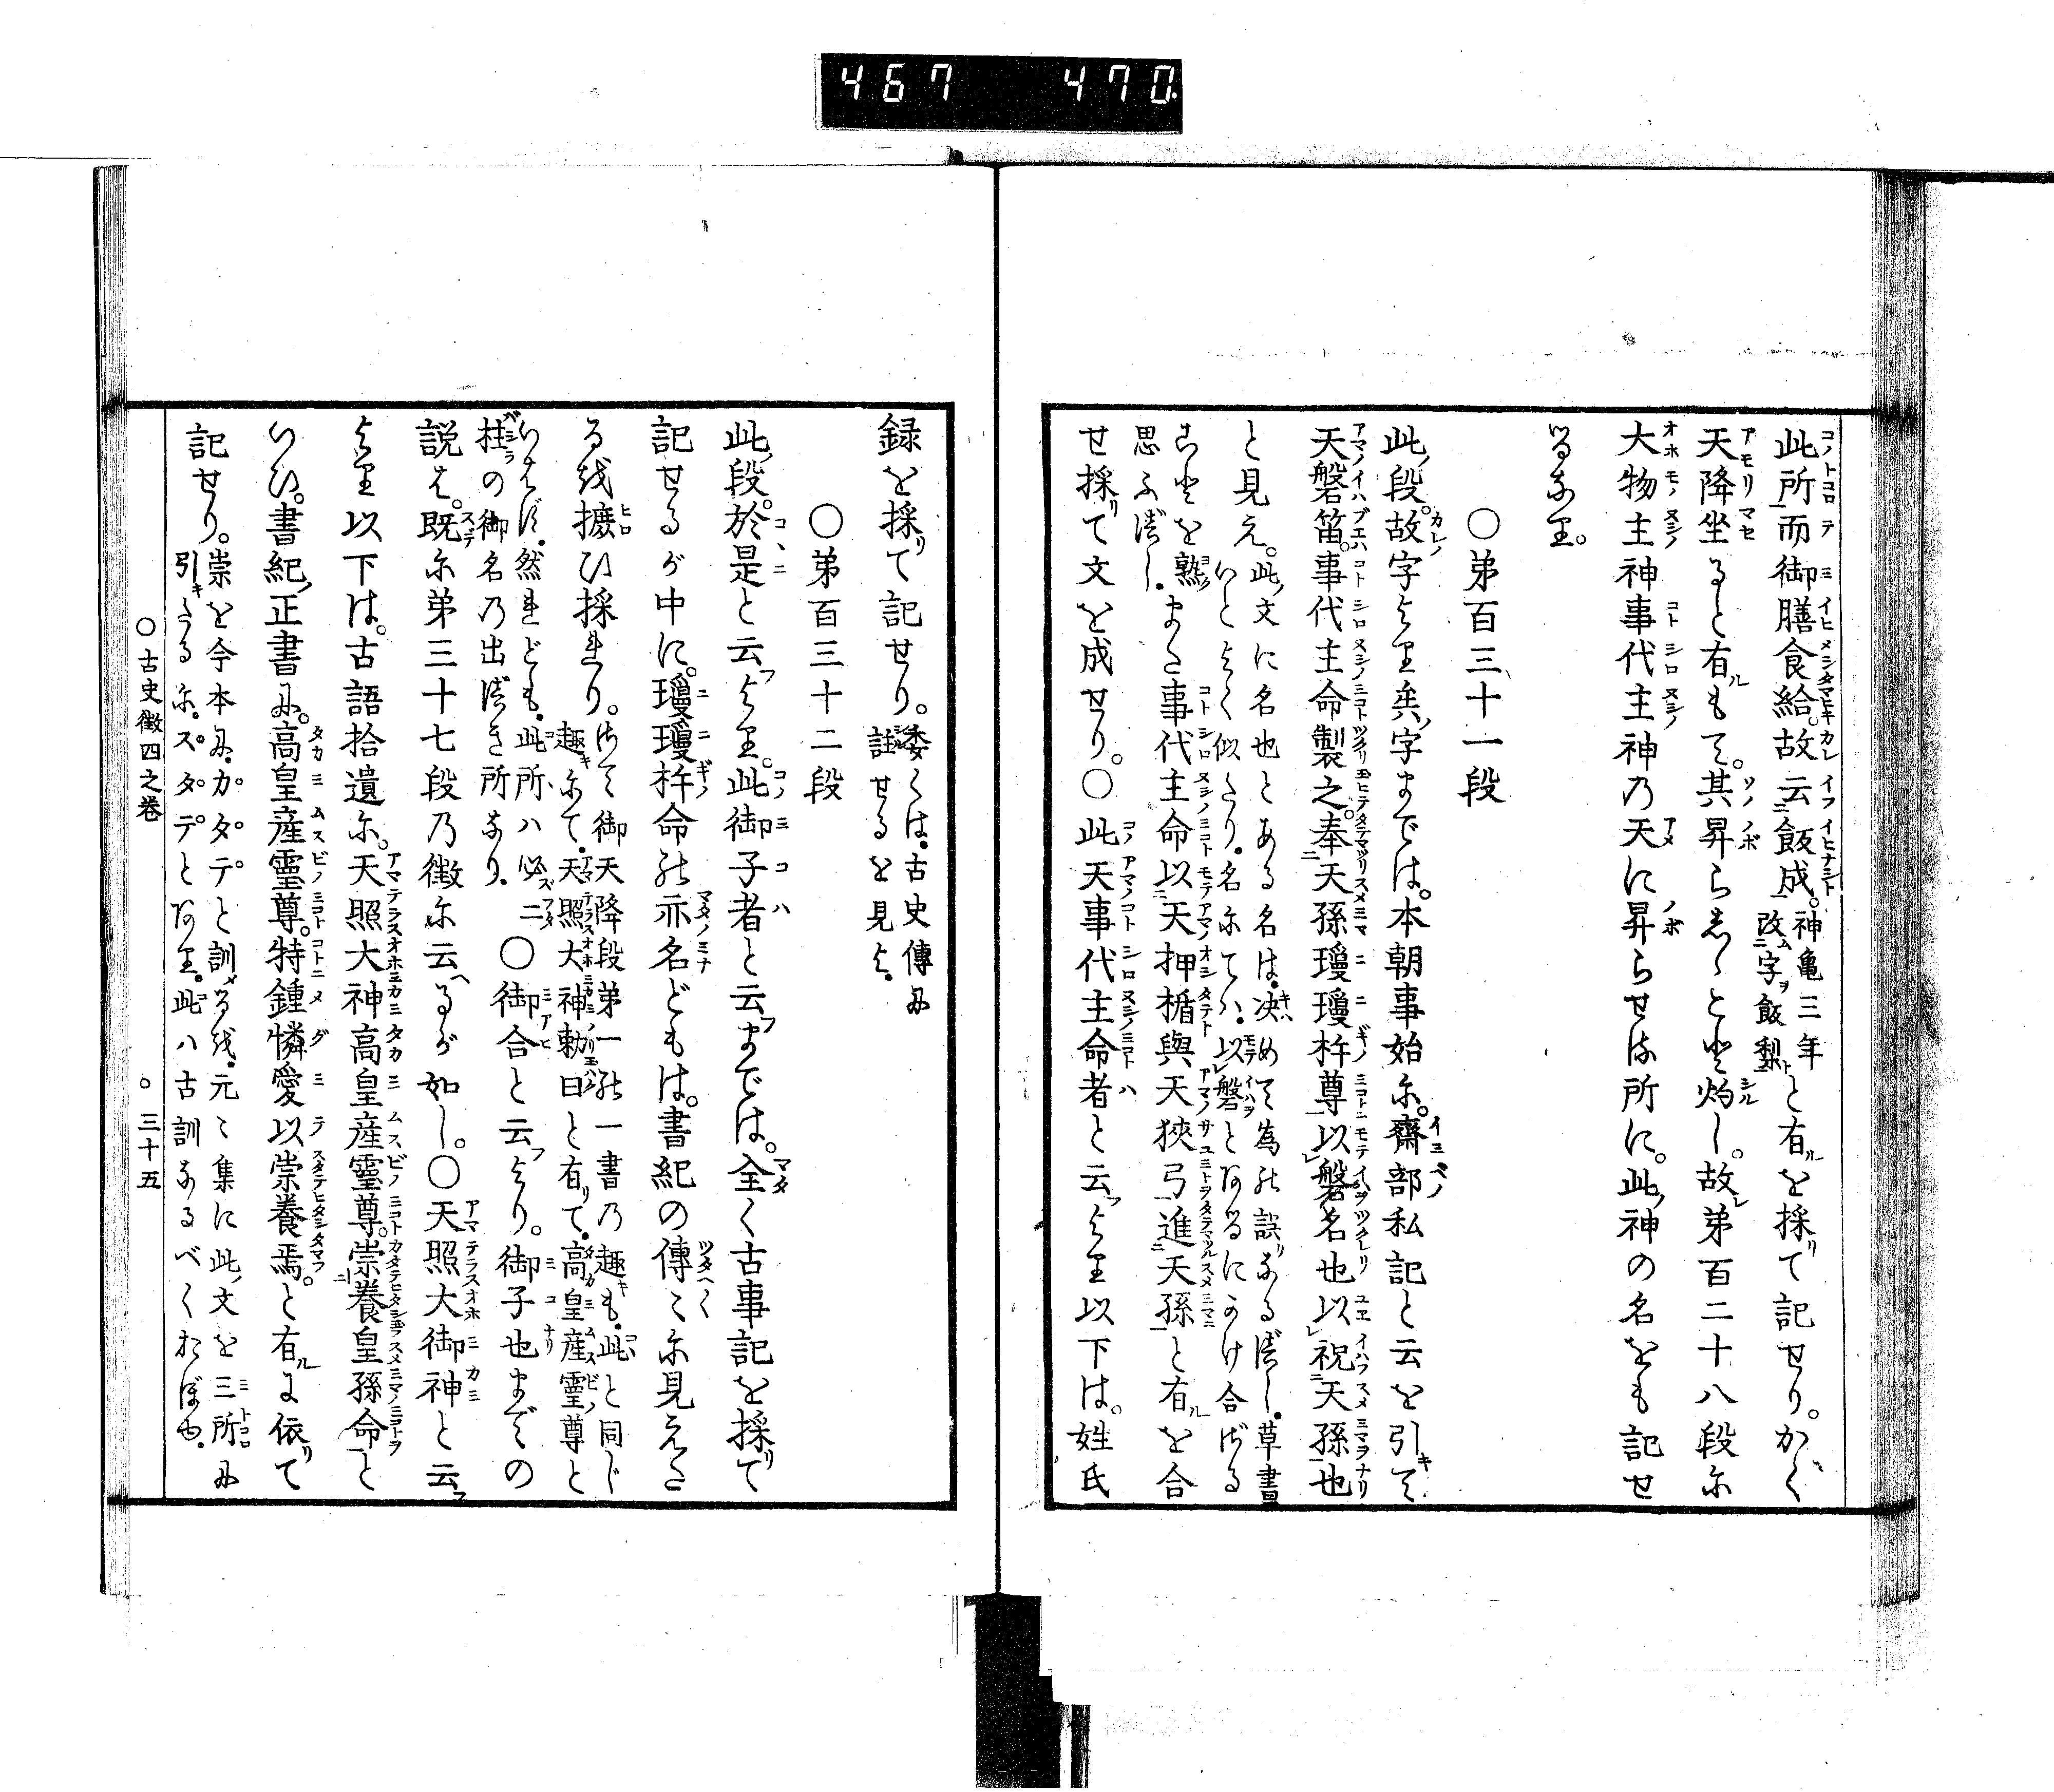 467 470
此所而御膳食給。故云飯成。神亀三年改字飯梨と有を採て記せり。かく
天降坐ると有もて。其昇らしゝとぞ灼し。故第百二十八段に
大物主神事代主神の天に昇らせる所に。此神の名をも記せ
るなり。
○第百三十一段
此段。故字より矣字までは。本朝事始に。齋部私記と云を引て
天磐笛。事代主命製之。奉天孫瓊瓊杵尊以磐名也以祝天孫也
と見え。此文に名也とある名は。决めて為の誤なるべし。草書いとよく似たり。名にては。以磐とあるにかけ合ざる
ことを熟思ふべし。また事代主命以天押楯與天狹弓進天孫と有を合
せ採て文を成せり。○此天事代主命者と云より以下は。姓氏
録を採て記せり。委くは。古史傳に註せるを見よ。
○第百三十二段
此段。於是と云より。此御子者と云までは。全く古事記を採て
記せるが中に。瓊瓊杵命の亦名どもは。書紀の傳々に見えた
るを摭ひ採れり。さて御天降段第一の一書の趣も。此と同じ趣にて。天照大神勅曰と有て。高皇産靈尊と
いはず。然れども。此所ハ必二柱の御名の出べき所なり。○御合と云より。御子也までの
説は。既に第三十七段の徴に云るが如し。○天照大御神と云
より以下は。古語拾遺に。天照大神高皇産靈尊。崇養皇孫命と
いひ。書紀正書に。高皇産靈尊。特鍾憐愛以崇養焉。と有に依て
記せり。崇を今本に。カタテと訓るを。元々集に此文を三所に引たるに。スタデとあり。此ハ古訓なるべくおぼゆ。
○古史徴四之巻 ○三十五